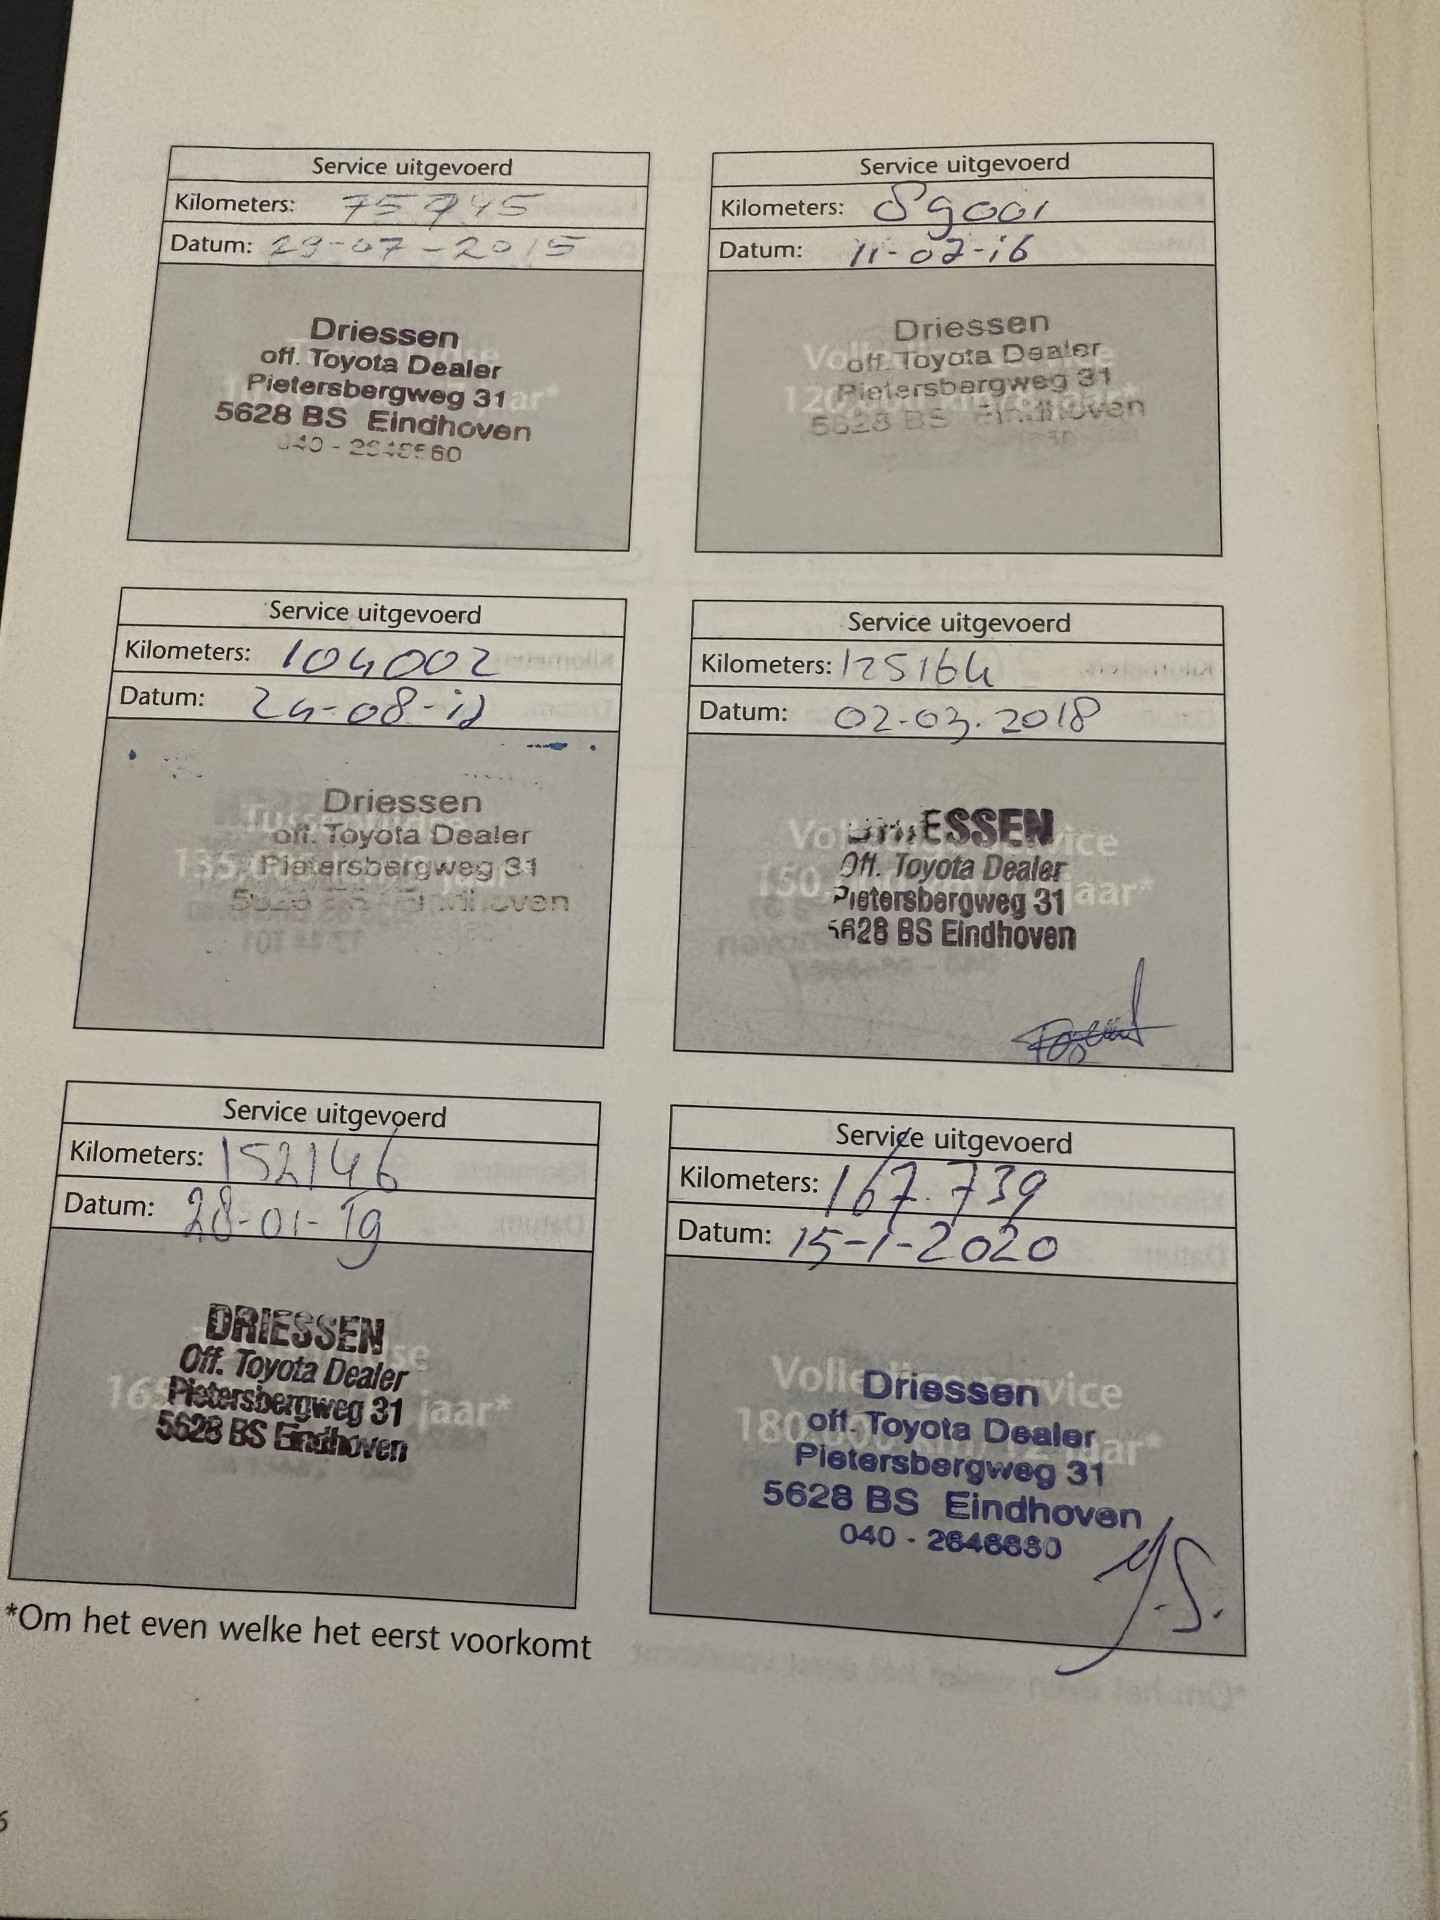 Service uitgevoerd
Kilometers: 75745
Datum: 29-07-2015
Driessen
off. Toyota Dealer
Pietersbergweg 31
5628 BS Eindhoven
Service uitgevoerd
Kilometers: 89001
Datum: 11-02-16
Driessen
off. Toyota Dealer
Pietersbergweg 31
5628 BS Eindhoven
Service uitgevoerd
Kilometers: 104002
Datum:
Driessen
off. Toyota Dealer
Pietersbergweg 31
Eindhoven
Service uitgevoerd
Kilometers: 125164
Datum: 02-03-2018
Volledige service
150. jaar*
DRIESSEN
Off. Toyota Dealer
Pietersbergweg 31
5628 BS Eindhoven
Service uitgevoerd
Kilometers: 152146
Datum: 28-01-19
jaar*
DRIESSEN
Off. Toyota Dealer
Pietersbergweg 31
5628 BS Eindhoven
Service uitgevoerd
Kilometers: 167.739
Datum: 15-1-2020
Volledige service
180.000 jaar*
Driessen
off. Toyota Dealer
Pietersbergweg 31
5628 BS Eindhoven
J.S.
*Om het even welke het eerst voorkomt